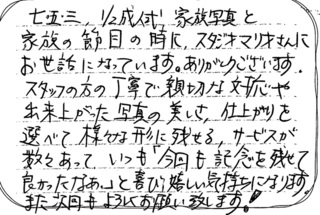 七五三、1/2成人式、家族写真と
家族の節目の時に、スタジオマリオさんに
お世話になっています。ありがとうございます.
スタッフの方の丁寧で親切な対応や
出来上がった写真の美しさ、仕上がりを
選べて様々な形に残せる、サービスが
数々あって、いつも「今回も記念を残せて
良かったなぁ。」と喜び嬉しい気持ちになります。
また次回もよろしくお願い致します!